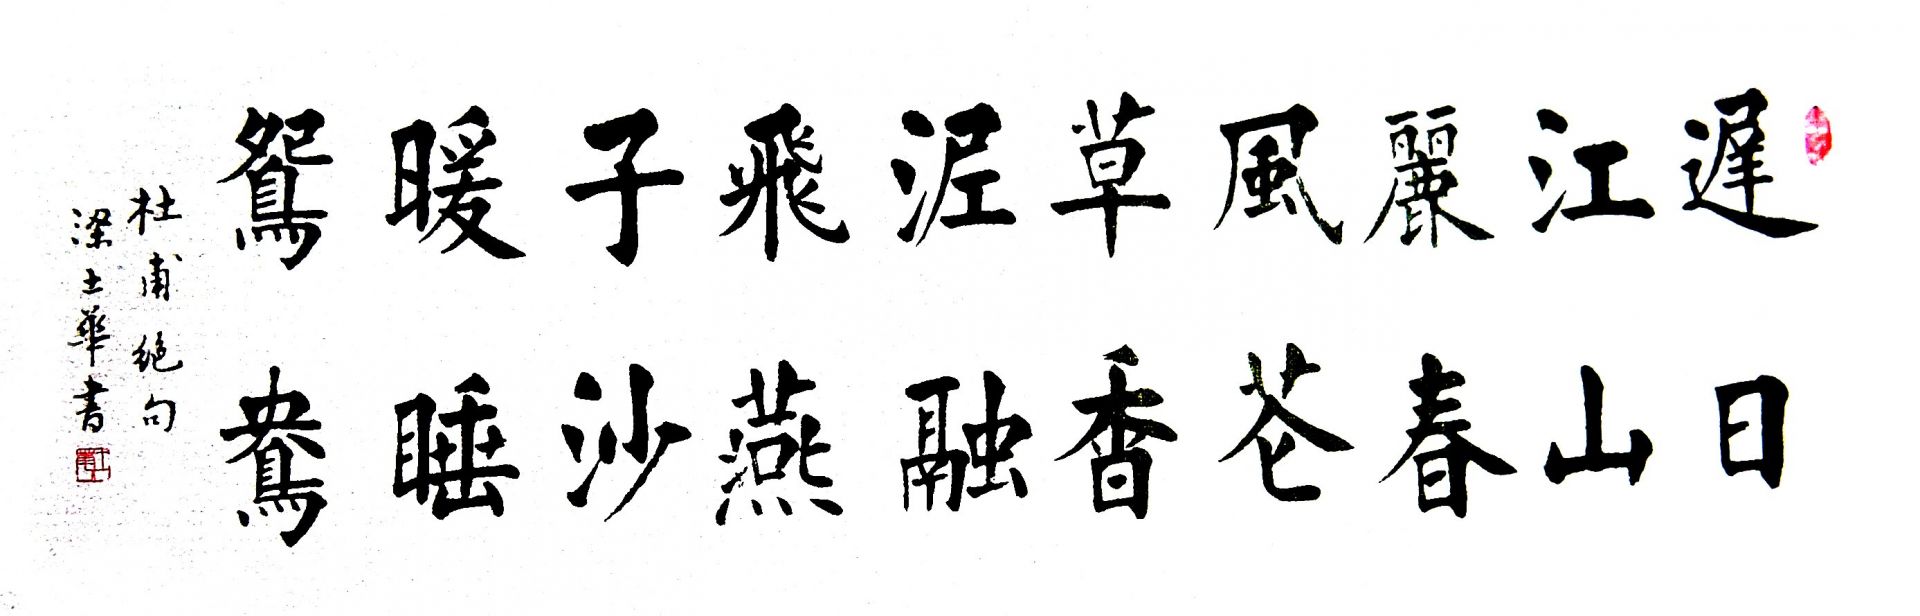 遲日
江山
麗春
風花
草香
泥融
飛燕
子沙
暖睡
鴛鴦
杜甫絶句
梁士華書